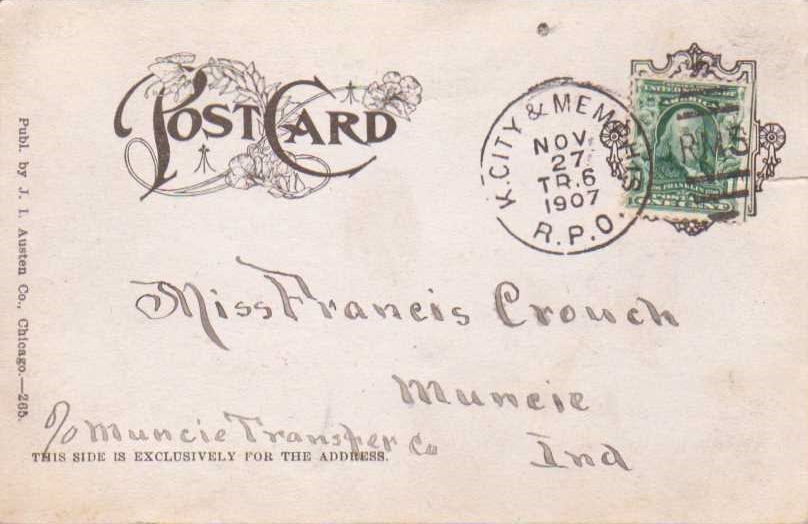 POST CARD
K. CITY & MEMPHIS
NOV.
27
TR.6
1907
R.P.O.
R.M.S
Miss Francis Crouch
Muncie
Ind
c/o Muncie Transfer Co
THIS SIDE IS EXCLUSIVELY FOR THE ADDRESS.
Publ. by J. I. Austen Co., Chicago.—265.